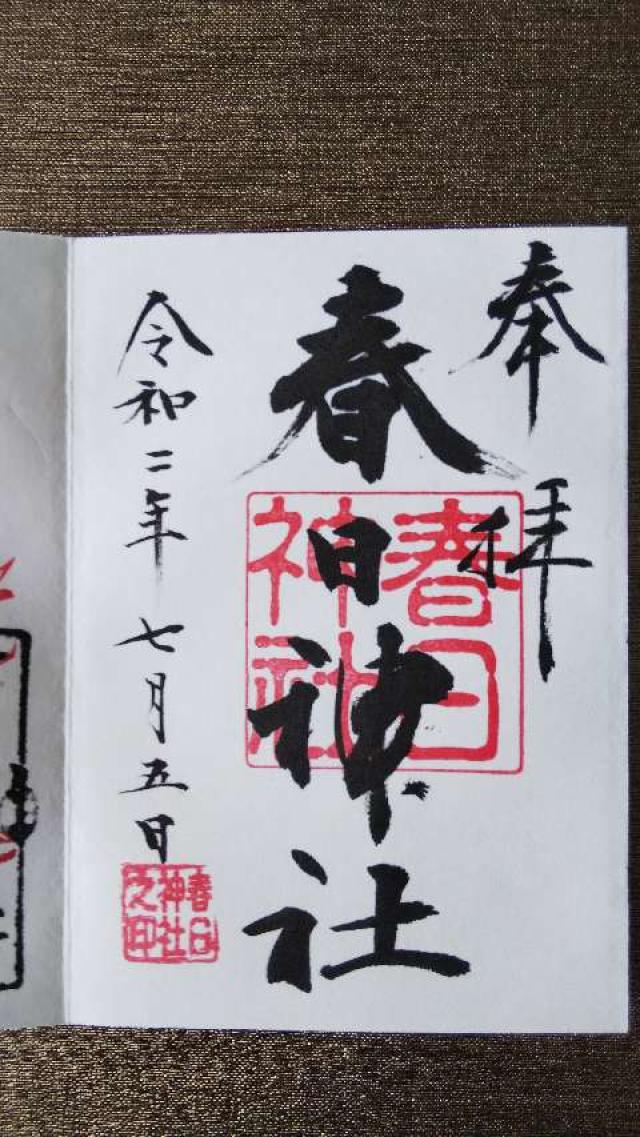 奉拝
春日神社
春日神社
令和二年七月五日
春日神社之印